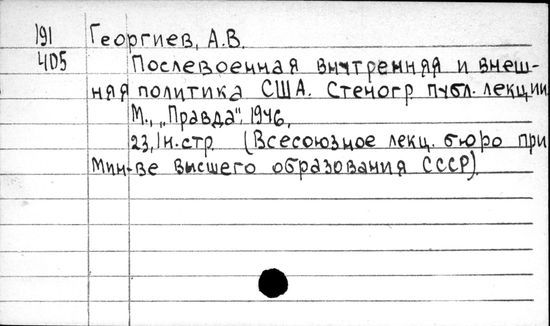 191 Георгиев, А.В.
405 Послевоенная внутренняя и внеш-
няя политика США. Стеногр публ. лекции.
М., „Правда", 1946,
23,1н.стр. (Всесоюзное лекц. бюро при
Мин-ве высшего образования СССР).